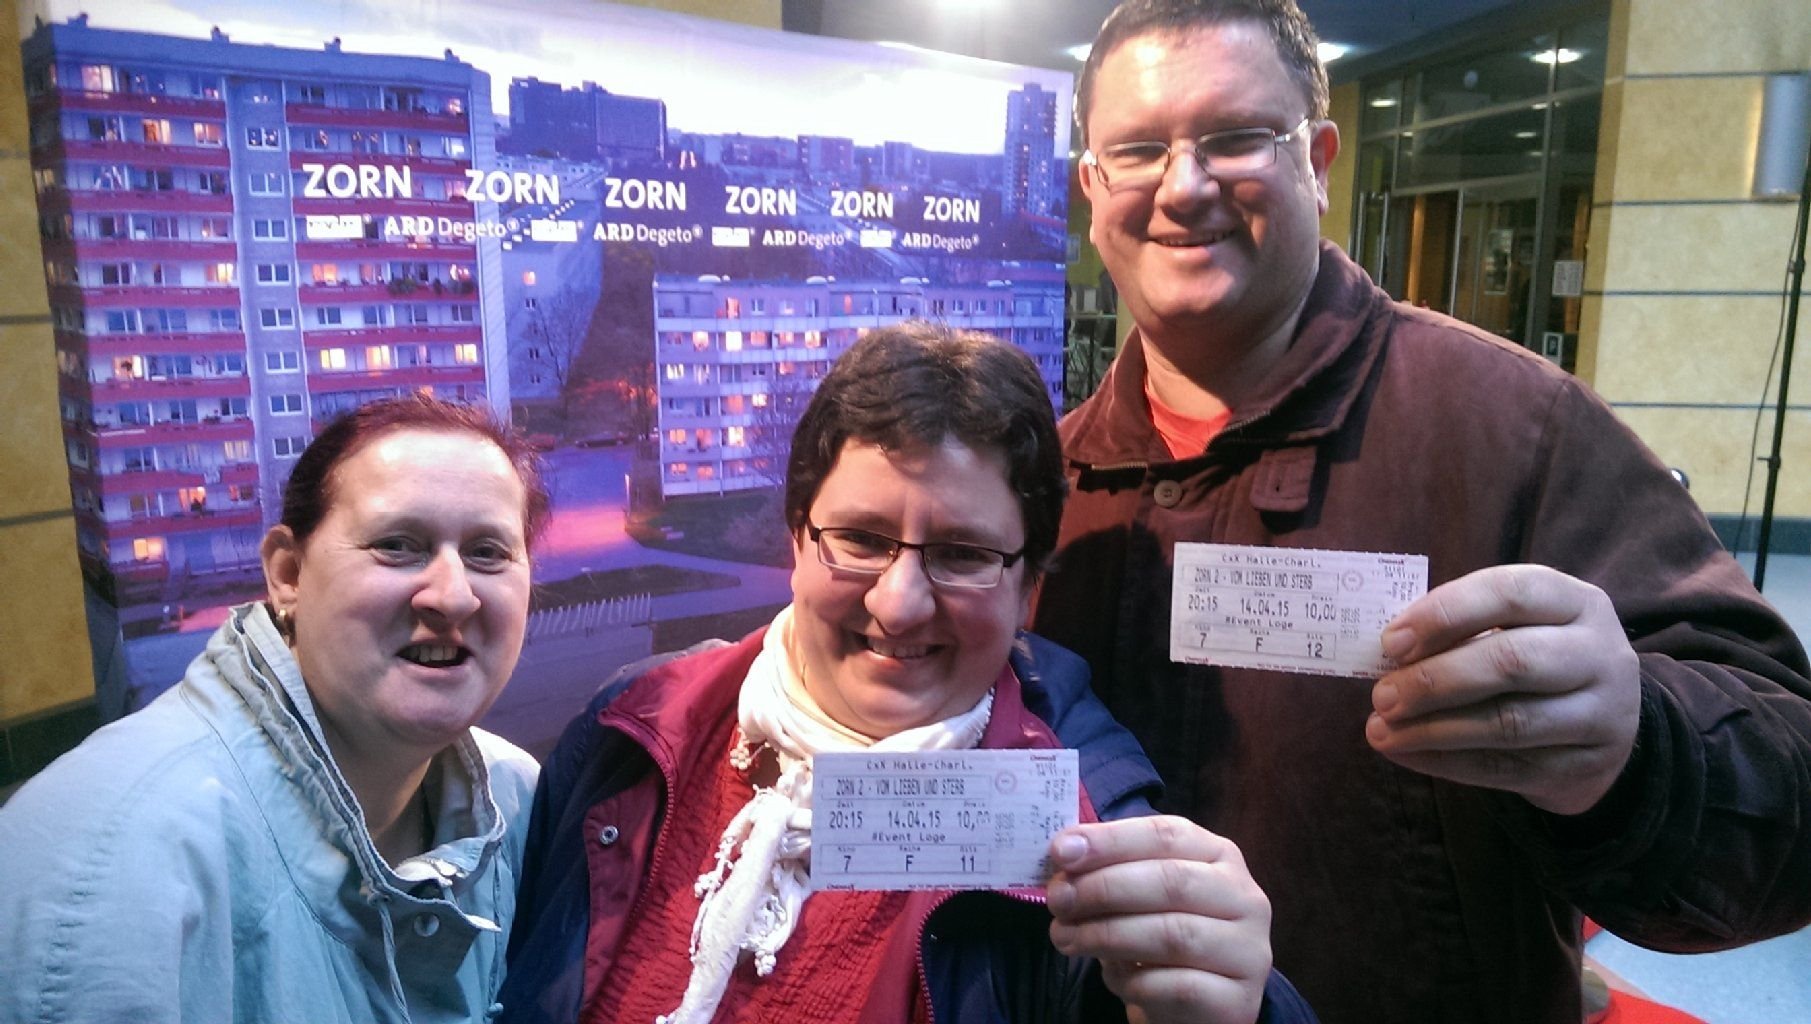 ZORN ZORN ZORN ZORN ZORN ZORN
ARD Degeto® ARD Degeto® ARD Degeto® ARD Degeto®
CxX Halle-Charl.
ZORN 2 - VOM LIEBEN UND STERB
Zeit Datum Preis
20:15 14.04.15 10,00
#Event Loge
Kino Reihe Sitz
7 F 12
CxX Halle-Charl.
ZORN 2 - VOM LIEBEN UND STERB
Zeit Datum Preis
20:15 14.04.15 10,00
#Event Loge
Kino Reihe Sitz
7 F 11